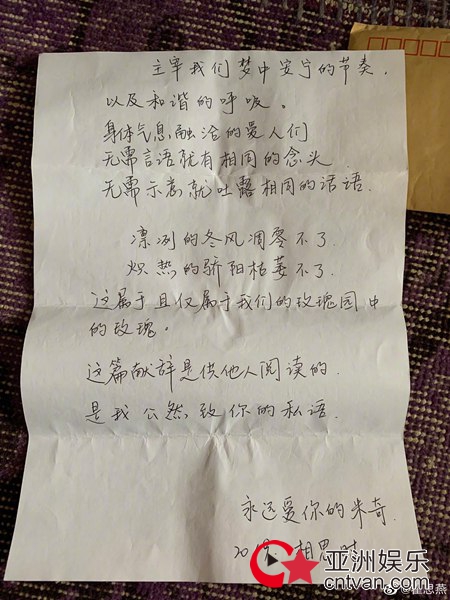 主宰我们梦中安宁的节奏，
以及和谐的呼吸。
身体气息融洽的爱人们
无需言语就有相同的念头
无需示意就吐露相同的话语.
凛冽的冬风凋零不了.
炽热的骄阳枯萎不了.
这属于且仅属于我们的玫瑰园中
的玫瑰。
这篇献辞是供他人阅读的.
是我公然致你的私语.
永远爱你的朱奇.
相思时
亚洲娱乐
cntvan.com
@霍思燕